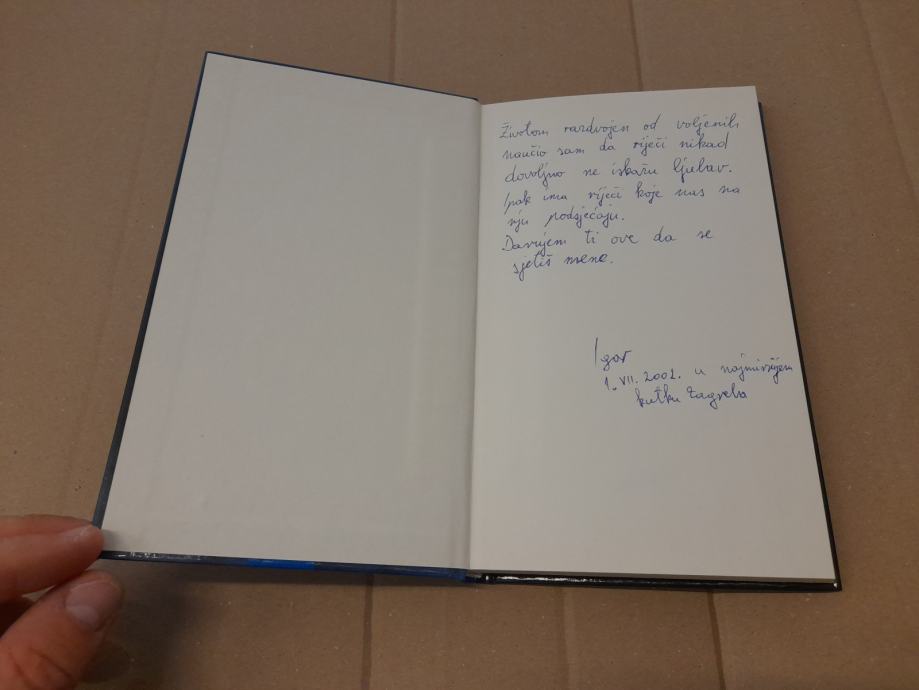 Životom razdvojen od voljenih
naučio sam da riječi nikad
dovoljno ne iskažu ljubav.
Ipak ima riječi koje nas na
nju podsjećaju.
Darujem ti ove da se
sjetiš mene.
Igor
1. VII. 2002. u najmirnijem
kutku Zagreba